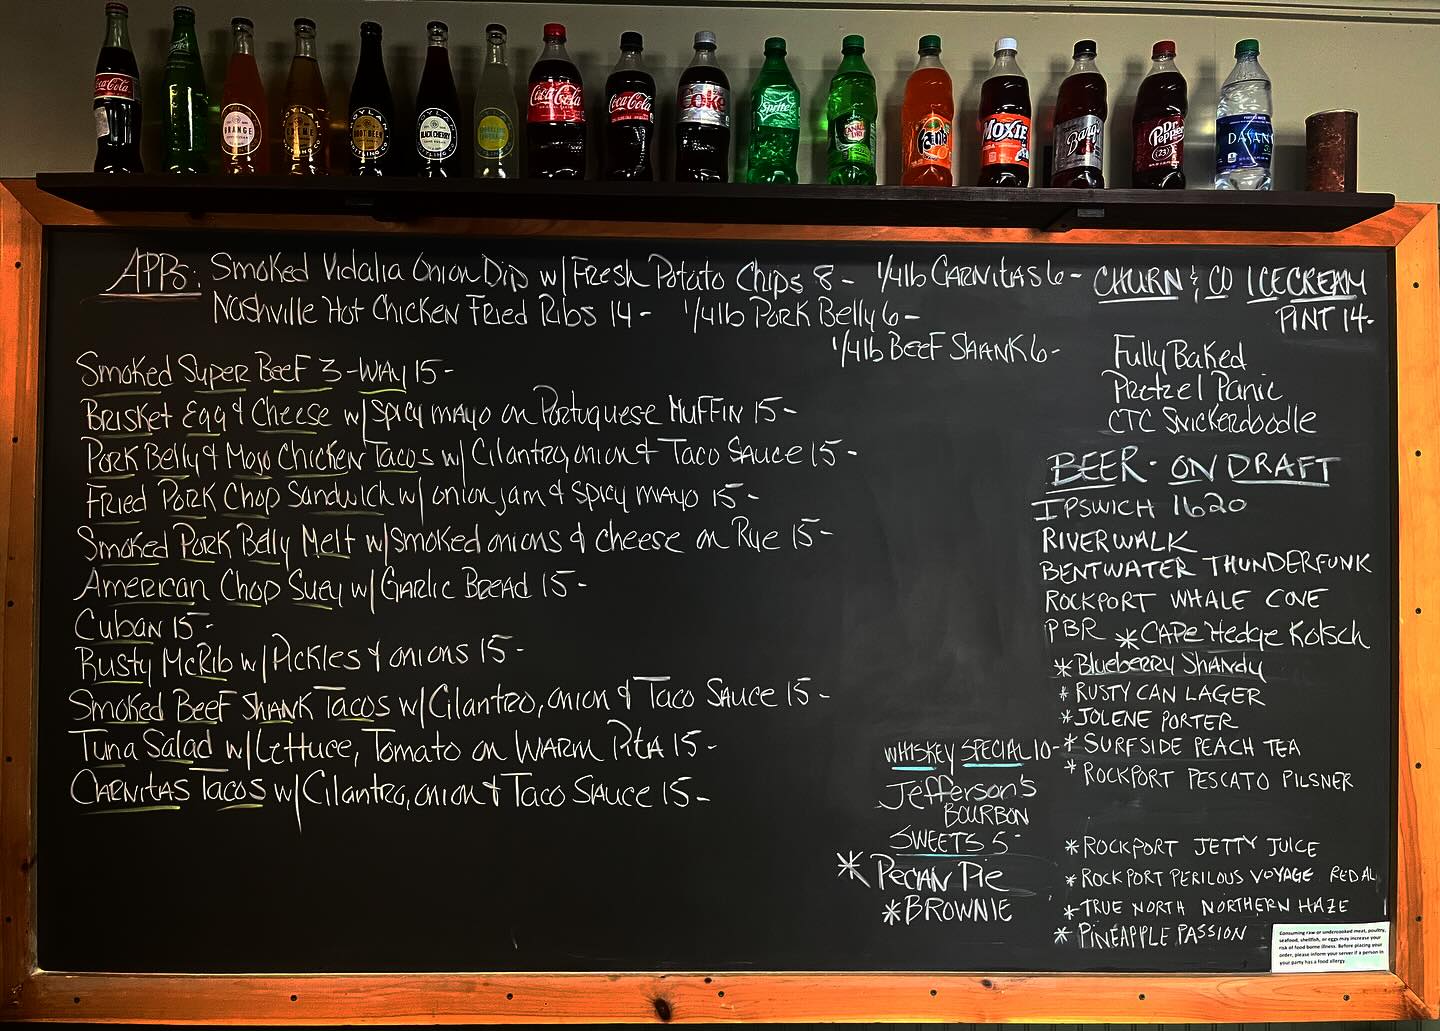 Coca-Cola
Sprite
ORANGE
ROOT BEER
BLACK CHERRY
Coca-Cola
Coca-Cola
Coke
Sprite
CANADA DRY
Fanta
MOXIE
Barq's
Dr Pepper
23
DASANI
APPS: Smoked Vidalia Onion Dip w/Fresh Potato Chips 8- 1/4lb CARNITAS 6-
Nashville Hot Chicken Fried Ribs 14- 1/4lb PORK Belly 6-
1/4lb BEEF SHANK 6-
Smoked Super BEEF 3-WAY 15-
BRISKET Egg & Cheese w/ Spicy mayo on Portuguese MUFFIN 15-
PORK Belly & Mojo Chicken Tacos w/ Cilantro, onion & Taco SAUCE 15-
Fried PORK Chop Sandwich w/ onion jam & spicy mayo 15-
Smoked PORK Belly Melt w/smoked onions & cheese on Rye 15-
American Chop Suey w/ Garlic Bread 15-
Cuban 15-
Rusty McRib w/Pickles & onions 15-
Smoked BEEF SHANK TACOS w/Cilantro, onion & Taco SAUCE 15-
Tuna Salad w/Lettuce, Tomato on WARM PITA 15-
CARNITAS TACOS w/Cilantro, onion & Taco SAUCE 15-
CHURN & CO ICECREAM
PINT 14-
Fully Baked
Pretzel Panic
CTC Snickerdoodle
BEER - ON DRAFT
IPSWICH 1620
RIVERWALK
BENTWATER THUNDERFUNK
ROCKPORT WHALE COVE
PBR * CAPE Hedge Kolsch
* Blueberry Shandy
* RUSTY CAN LAGER
* JOLENE PORTER
* SURFSIDE PEACH TEA
* ROCKPORT PESCATO PILSNER
* ROCKPORT JETTY JUICE
* ROCKPORT PERILOUS VOYAGE RED AL
* TRUE NORTH NORTHERN HAZE
* PINEAPPLE PASSION
WHISKEY SPECIAL 10-
Jefferson's
BOURBON
SWEETS 5-
* PECAN PIE
* BROWNIE
Consuming raw or undercooked meat, poultry,
seafood, shellfish, or eggs may increase your
risk of food borne illness. Before placing your
order, please inform your server if a person in
your party has a food allergy.